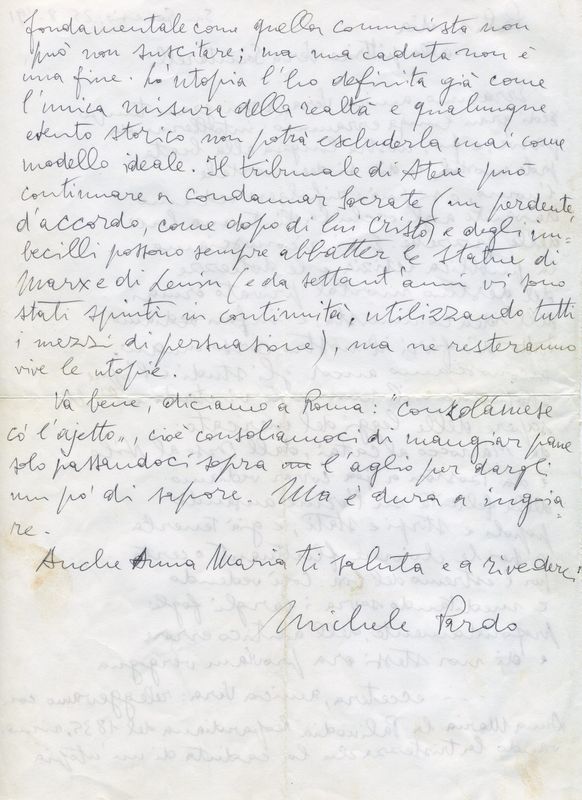 fondamentale come quella comunista non
può non suscitare; ma una caduta non è
una fine. L'utopia l'ho definita già come
l'unica misura della realtà e qualunque
evento storico non potrà escluderla mai come
modello ideale. Il tribunale di Atene può
continuare a condannar Socrate (un perdente,
d'accordo, come dopo di lui Cristo) e degli im=
becilli possono sempre abbatter le statue di
Marx e di Lenin (e da settant'anni vi sono
stati spinti in continuità, utilizzando tutti
i mezzi di persuasione), ma ne resteranno
vive le utopie.
Va bene, diciamo a Roma: "conzolámese
có l'ajetto", cioè consoliamoci di mangiar pane
solo passandoci sopra l'aglio per dargli
un pó di sapore. Ma è dura a ingoia=
re.
Anche Anna Maria ti saluta e a rivederci
Michele Pardo